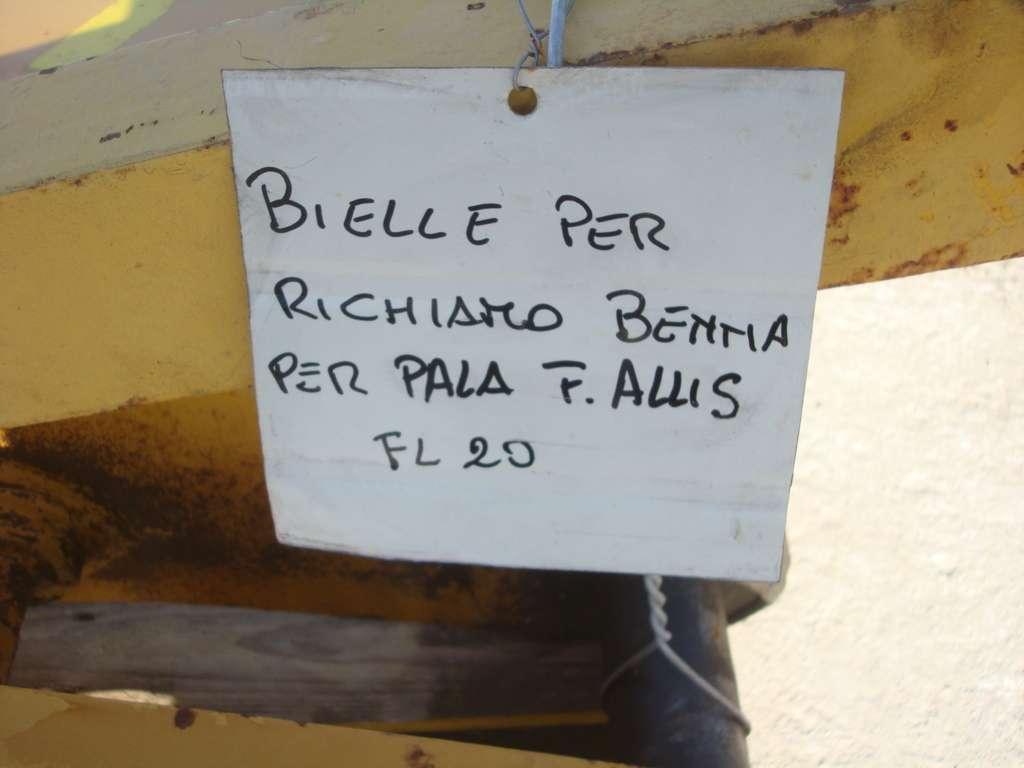 BIELLE PER
RICHIAMO BENNA
PER PALA F. ALLIS
FL 20